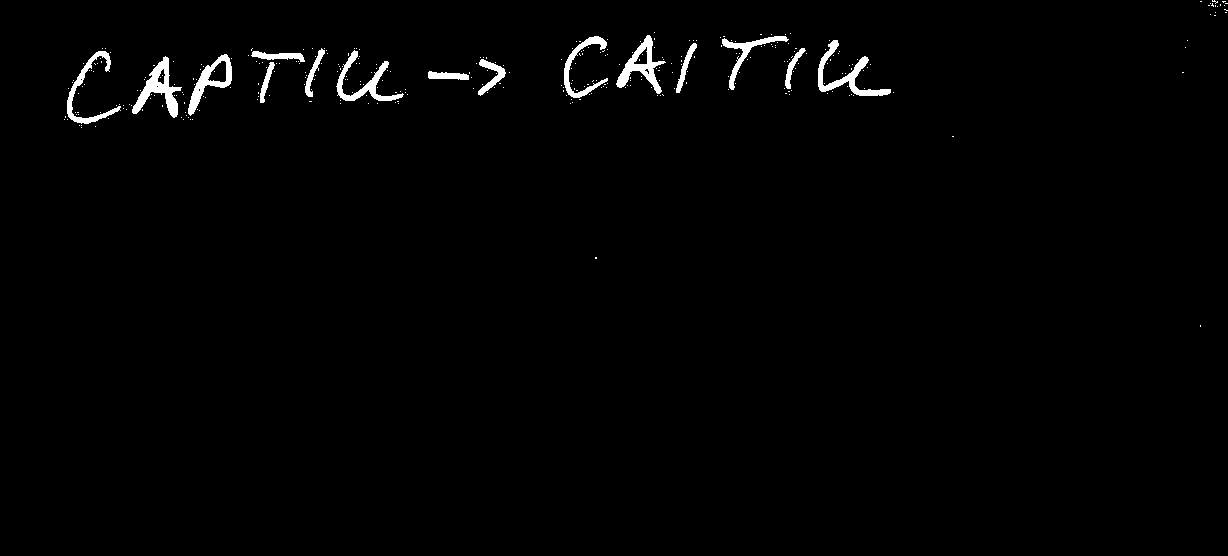 CAPTIU -> CAITIU